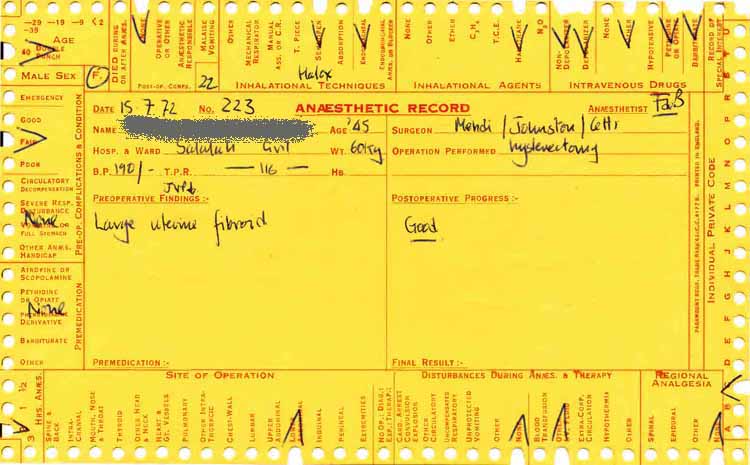 -29 -19 -9 <2
-39
AGE
40 DOUBLE PUNCH
MALE SEX F.
DIED DURING OR AFTER ANÆS.
NONE
OPERATIVE OR OTHER
ANÆSTHETIC RESPONSIBLE
MALAISE VOMITING
OTHER
POST-OP. COMPS.
22
MECHANICAL RESPIRATOR
MANUAL ASS. OR C.R.
T. PIECE
ABSORPTION
INHALATIONAL TECHNIQUES
Halox
NONE
OTHER
ETHER
C₃H₆
T.C.E.
HALOTHANE
N₂O
INHALATIONAL AGENTS
NON-DEPOLARIZER
DEPOLARIZER
OTHER
HYPOTENSIVE
PETHIDINE OR OPIATE
BARBITURATE
INTRAVENOUS DRUGS
RECORD OF SPECIAL INTEREST
EMERGENCY
GOOD
FAIR
POOR
CIRCULATORY DECOMPENSATION
SEVERE RESP. DISTURBANCE
None
VOMITING OR FULL STOMACH
OTHER ANÆS. HANDICAP
PRE-OP. COMPLICATIONS & CONDITION
ATROPINE OR SCOPOLAMINE
PETHIDINE OR OPIATE
None
PHENOTHIAZINE DERIVATIVE
BARBITURATE
OTHER
PREMEDICATION
DATE 15.7.72 No. 223 ANÆSTHETIC RECORD ANÆSTHETIST FaB
NAME AGE '45 SURGEON Mehdi / Johnston / Cetti
HOSP. & WARD Salalah Civil WT. 60kg OPERATION PERFORMED hysterectomy
B.P. 190/- T.P.R. — 116 — HB.
JVP6
PREOPERATIVE FINDINGS :- POSTOPERATIVE PROGRESS :-
Large uterine fibroid Good
PREMEDICATION :- FINAL RESULT :-
PRINTED IN ENGLAND.
INDIVIDUAL PRIVATE CODE
3 1 ½
HRS. ANÆS.
SITE OF OPERATION
SPINE & BACK
INTRA-CRANIAL
MOUTH, NOSE & THROAT
THYROID
OTHER HEAD & NECK
HEART & GT. VESSELS
PULMONARY
OTHER INTRA-THORACIC
CHEST-WALL
LUMBAR
UPPER ABDOMINAL
LOWER ABDOMINAL
INGUINAL
PERINEAL
EXTREMITIES
NO OP., DIAG. EX., THERAPY
DISTURBANCES DURING ANÆS. & THERAPY
CARD. ARREST CONVULSION EXPLOSION
OTHER CIRCULATORY
UNCOMPENSATED RESPIRATORY
UNPROTECTED VOMITING
OTHER
NONE
BLOOD TRANSFUSION
OTHER I.V. FLUID
EXTRA-CORP. CIRCULATION
HYPOTHERMIA
OTHER
REGIONAL ANALGESIA
SPINAL
EPIDURAL
OTHER
NONE